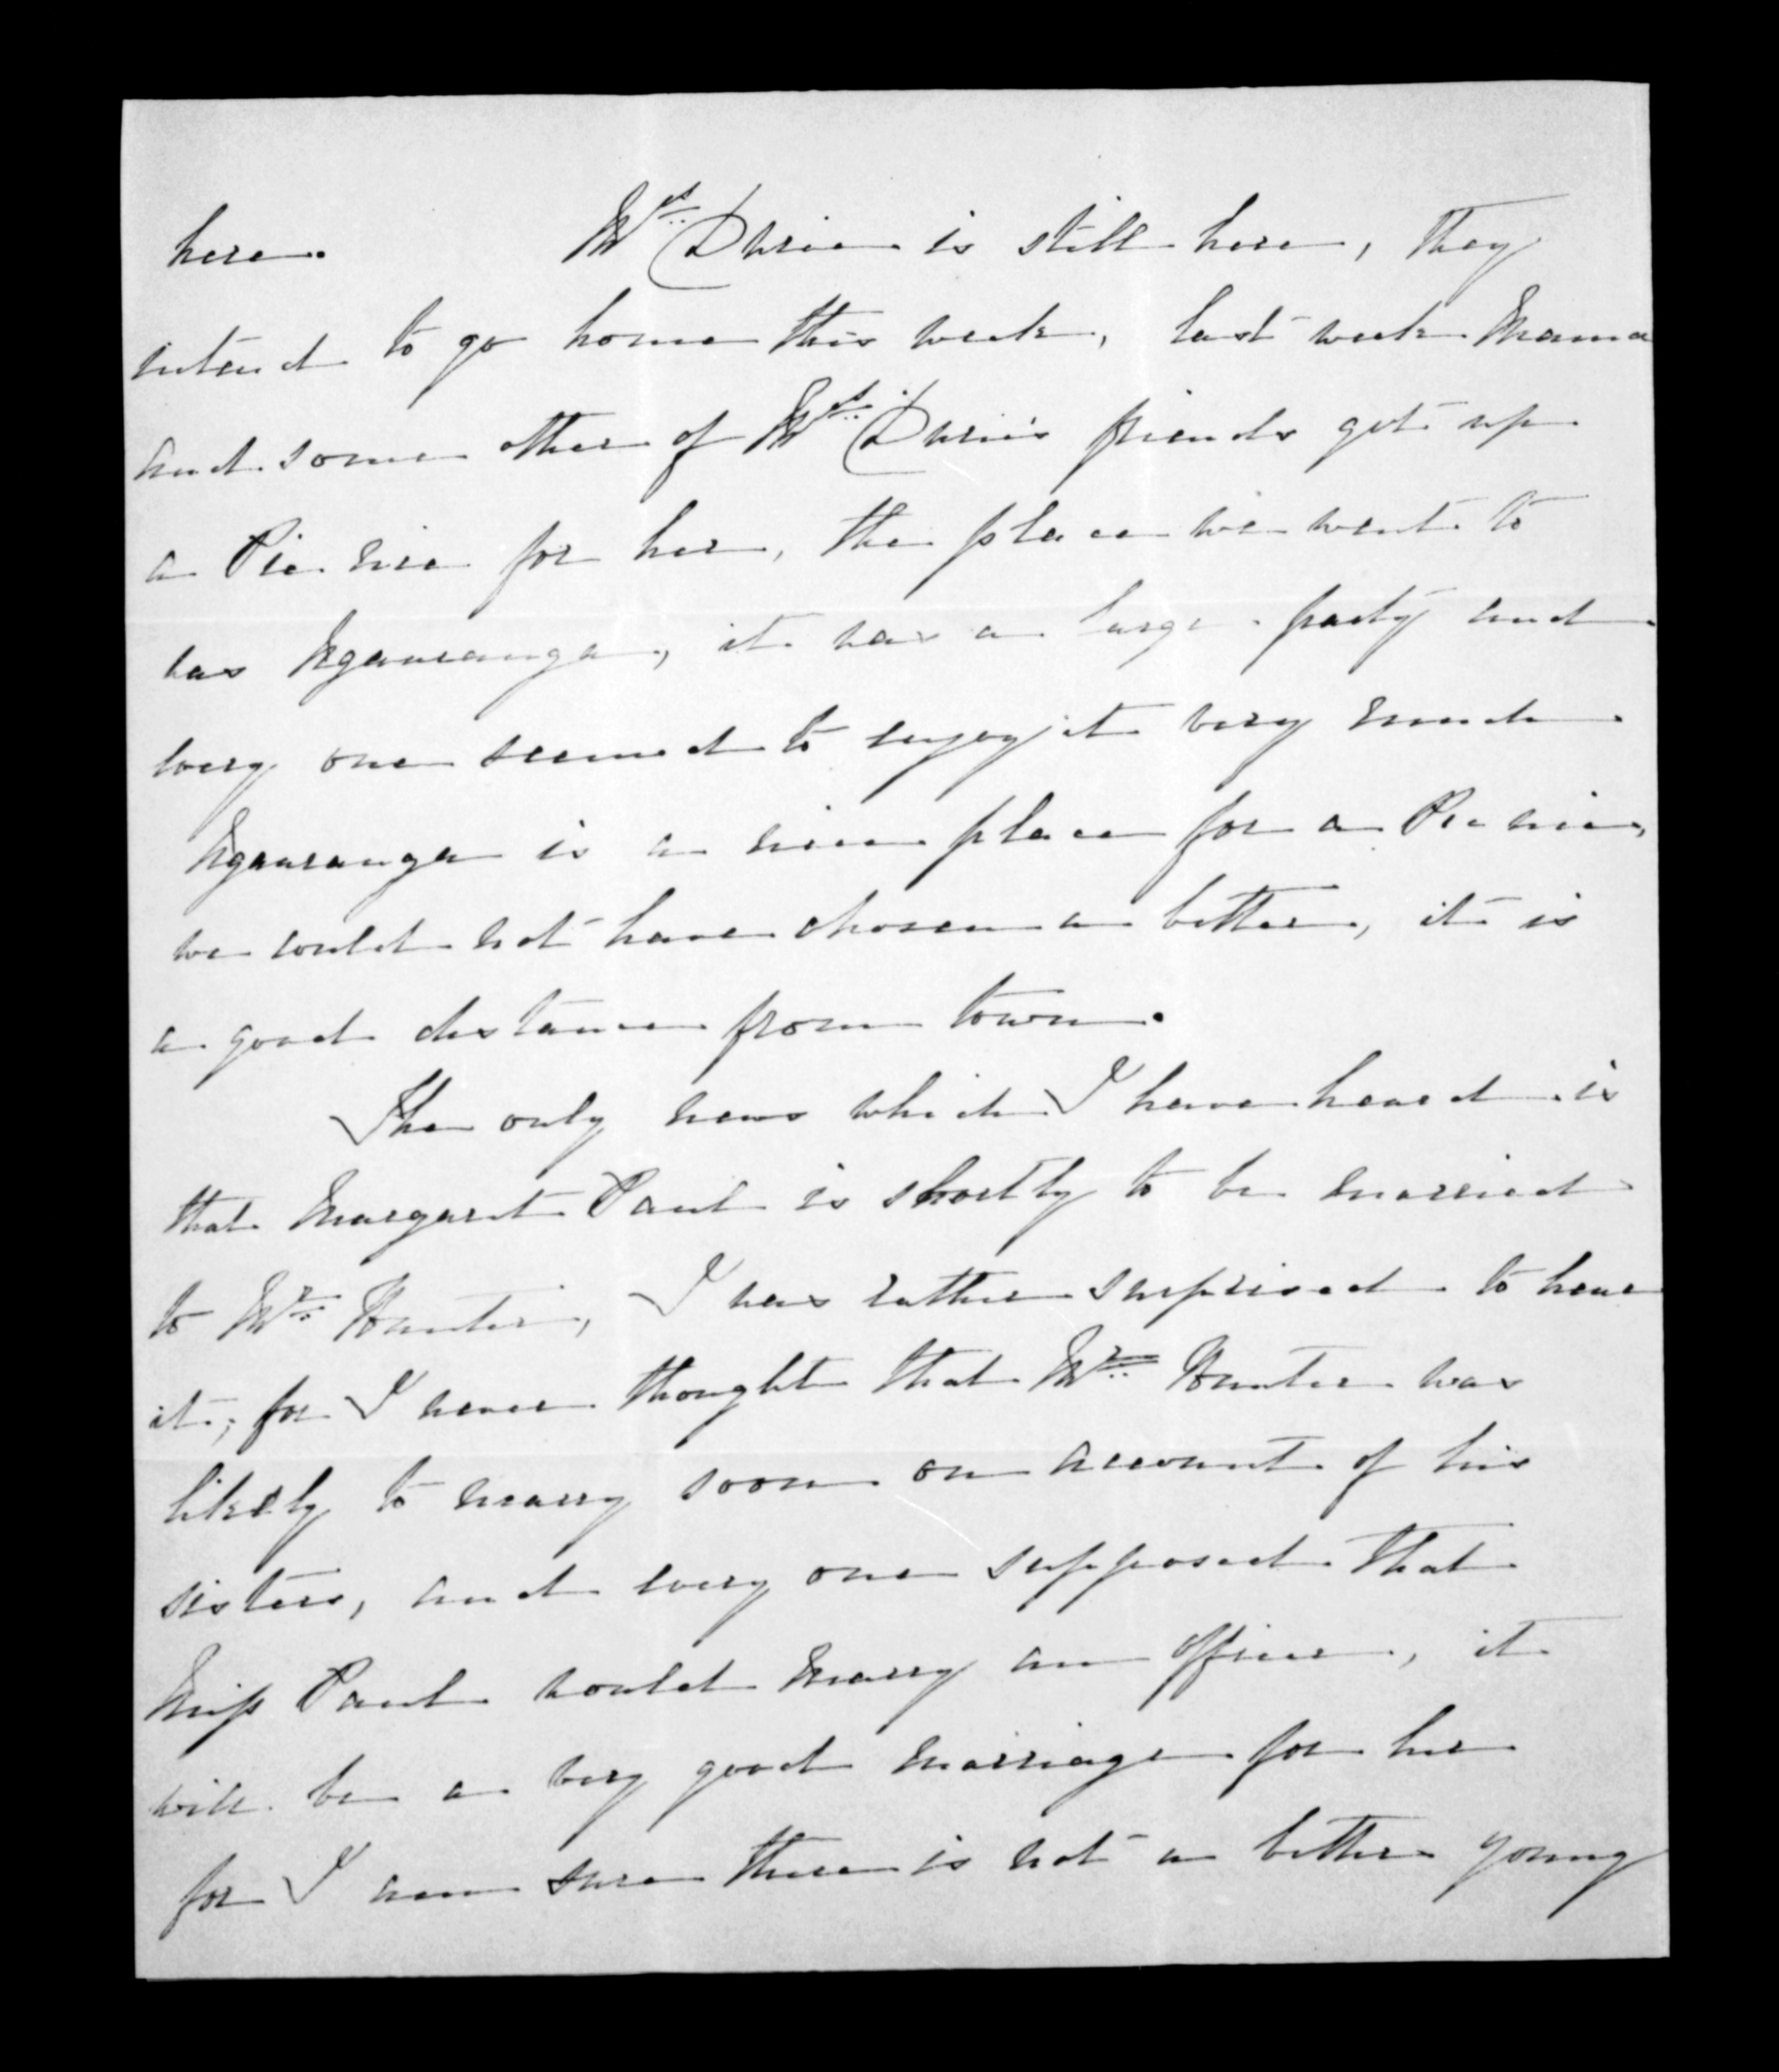 here. Mrs Durie is still here, they
intend to go home this week, last week Mama
and some other of Mrs Durie's friends got up
a Pic nic for her, the place we went to
was Ngauranga, it was a large party and
every one seemed to enjoy it very much
Ngauranga is a nice place for a Pic nic,
we could not have chosen a better, it is
a good distance from town.
The only news which I have heard is
that Margaret Paul is shortly to be married
to Mr Hunter, I was rather surprised to hear
it, for I never thought that Mr Hunter was
likely to marry soon on account of his
sisters, and every one supposed that
Miss Paul would marry an officer, it
will be a very good marriage for her
for I am sure there is not a better young